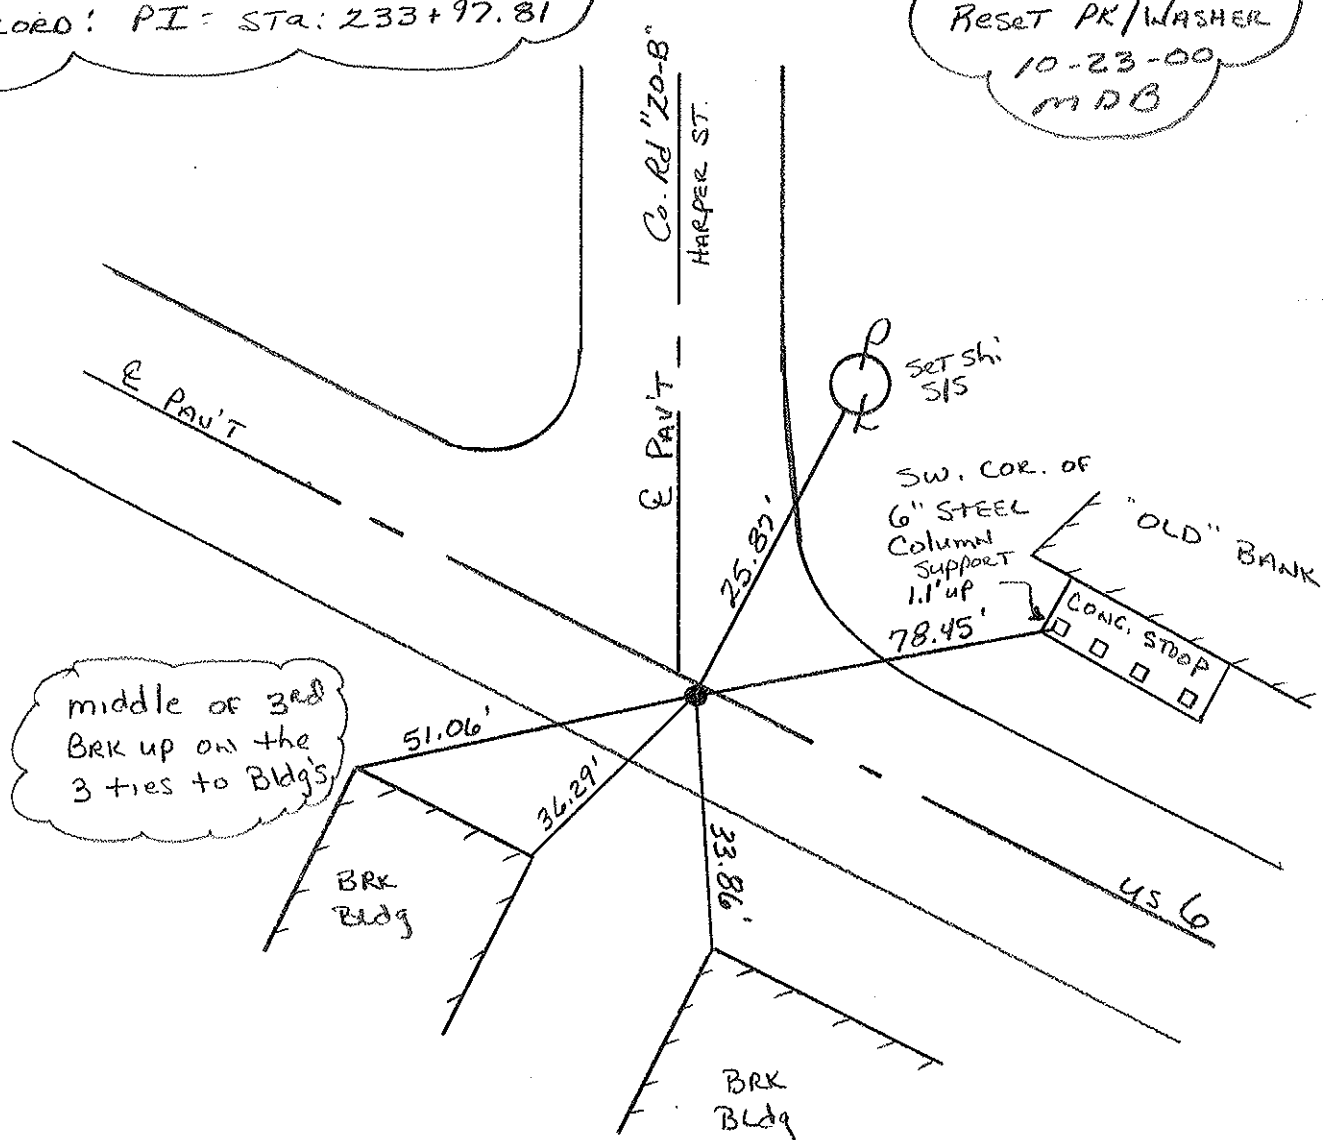 CORD: PI = STa: 233+97.81
RESET PK/WASHER
10-23-00
MDB
Co. Rd "20-B"
HARPER ST.
℄ PAV'T
℄ PAV'T
P
L
SET Shi
S/S
SW. COR. OF
6" STEEL
Column
Support
1.1' up
"OLD" BANK
CONC. STOOP
25.87'
78.45'
51.06'
36.29'
33.86'
middle of 3rd
BRK up on the
3 ties to Bldg's
BRK
Bldg
US 6
BRK
Bldg